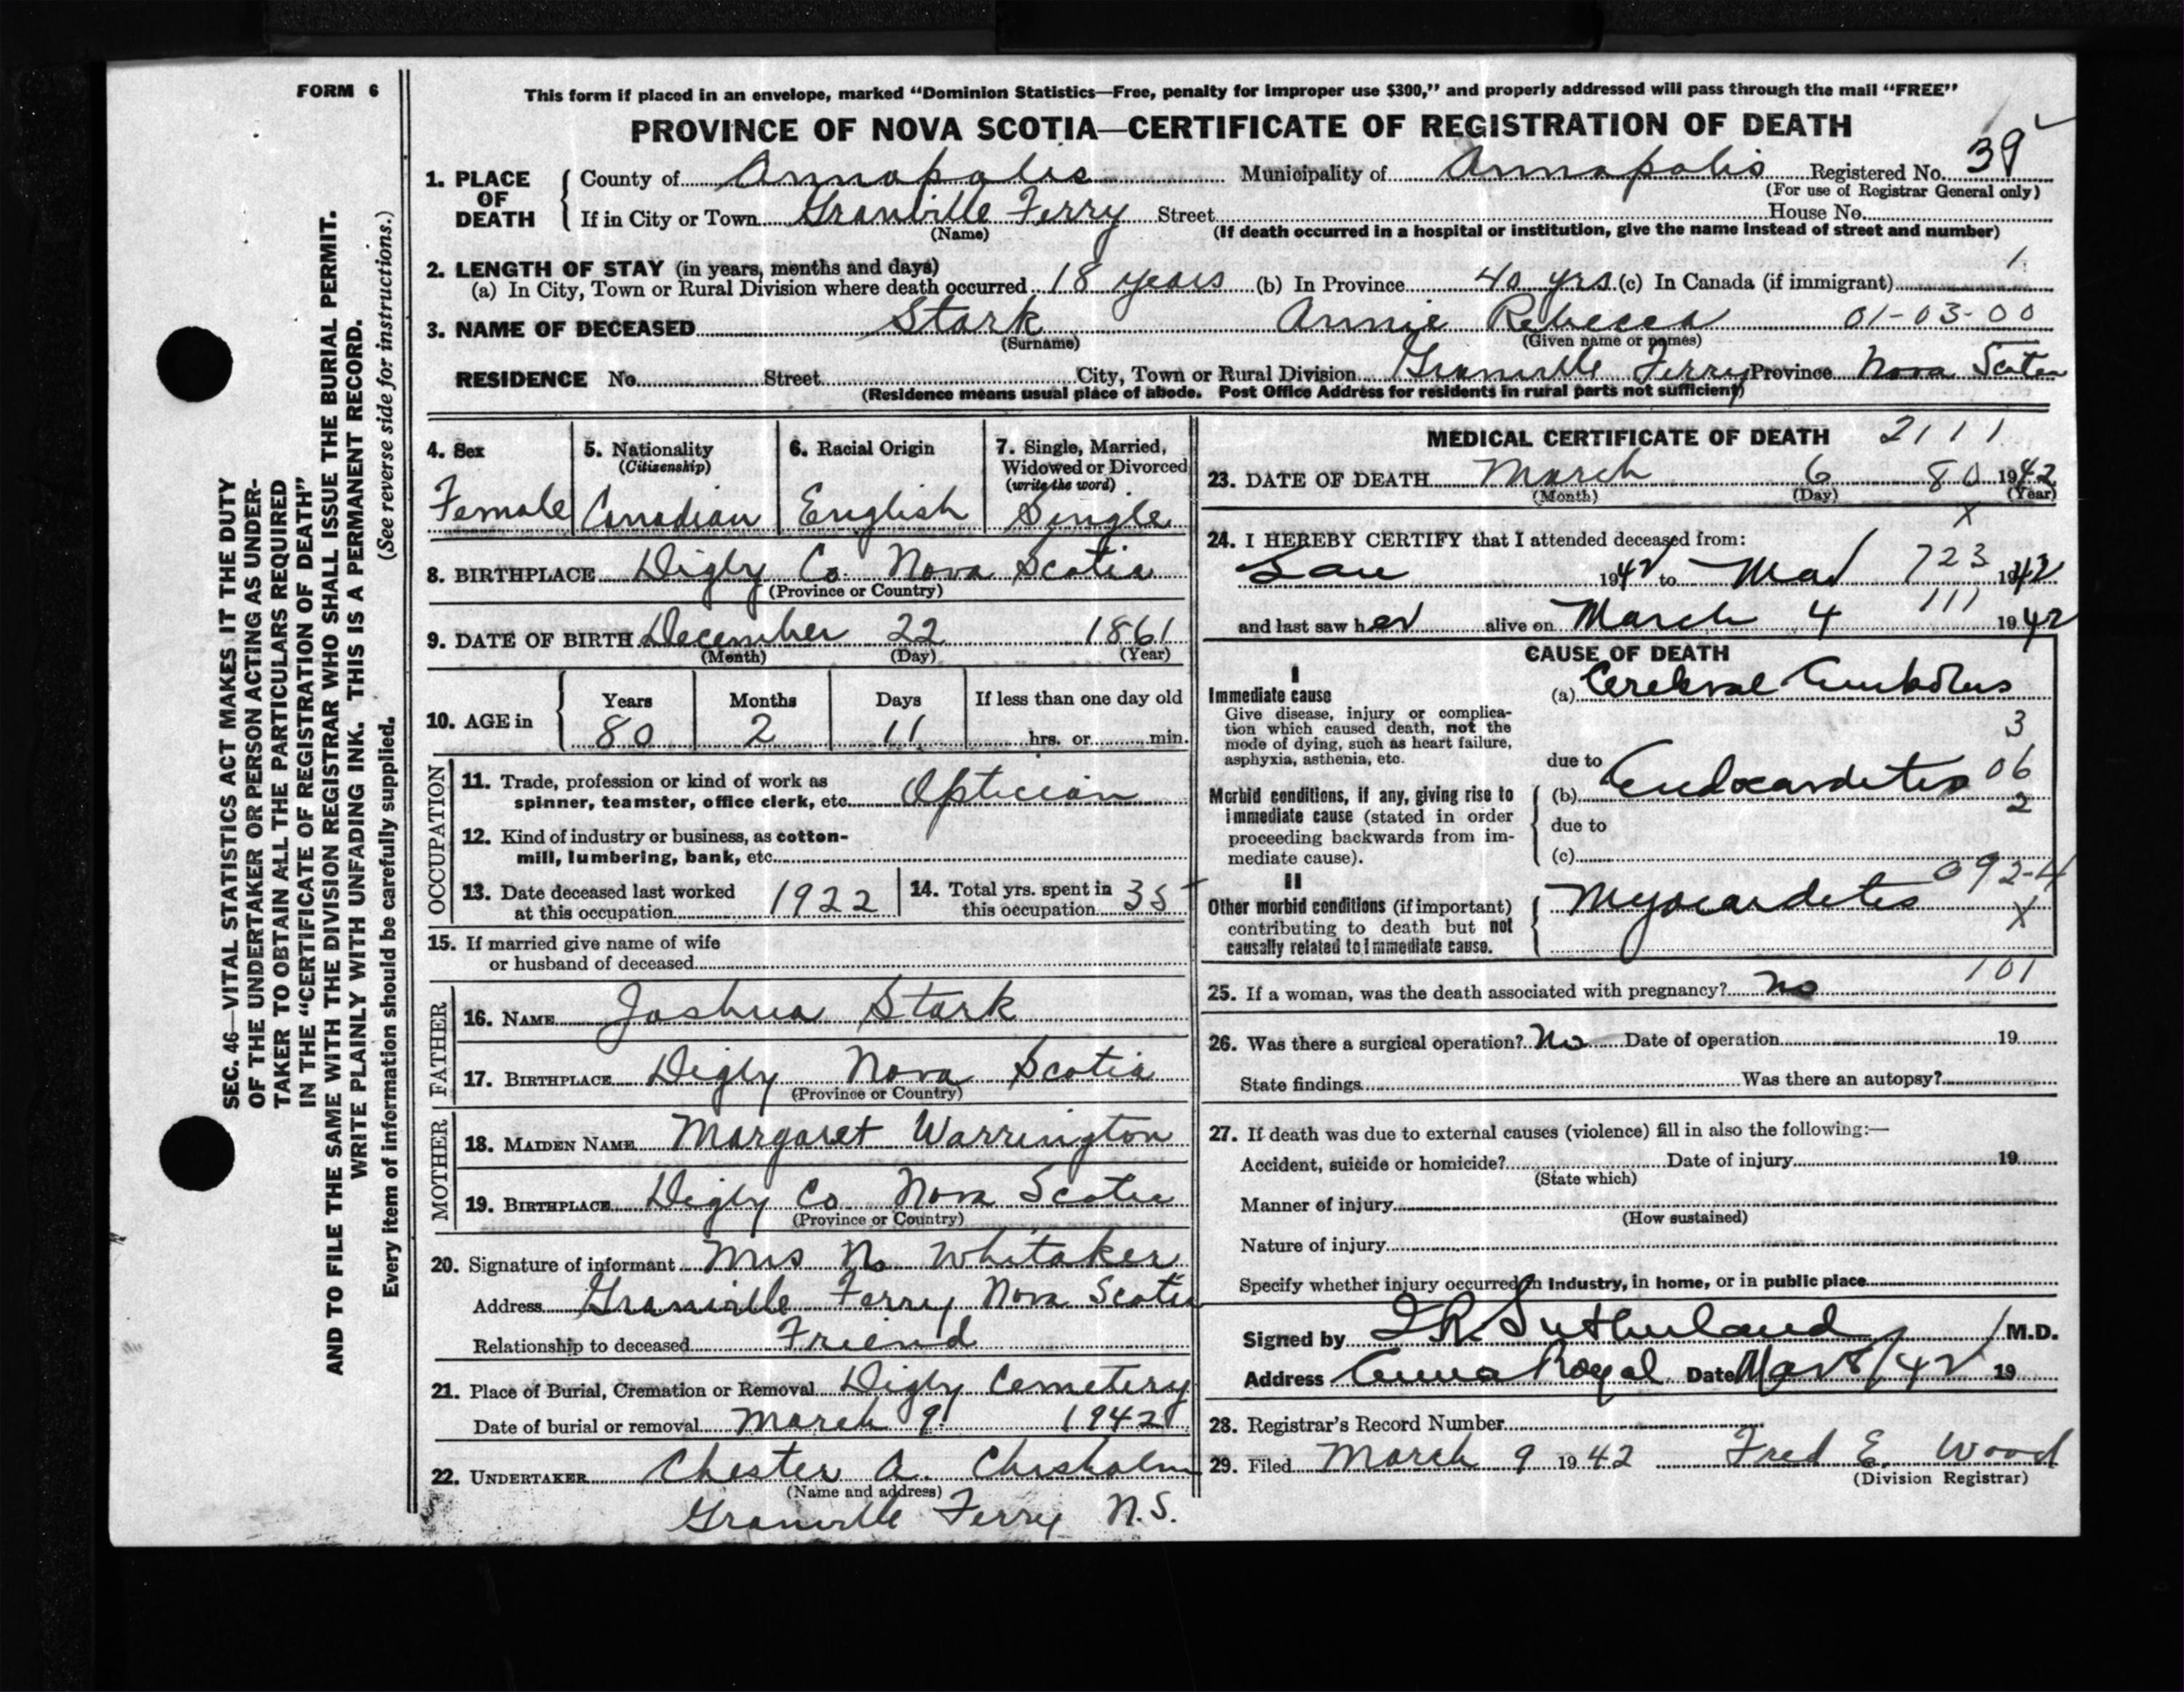 FORM 6
This form if placed in an envelope, marked “Dominion Statistics—Free, penalty for improper use $300,” and properly addressed will pass through the mail “FREE”
PROVINCE OF NOVA SCOTIA—CERTIFICATE OF REGISTRATION OF DEATH
1. PLACE OF DEATH County of Annapolis Municipality of Annapolis Registered No. 39
(For use of Registrar General only)
If in City or Town Granville Ferry Street House No.
(Name) (If death occurred in a hospital or institution, give the name instead of street and number)
2. LENGTH OF STAY (in years, months and days) 1
(a) In City, Town or Rural Division where death occurred 18 years (b) In Province 40 yrs (c) In Canada (if immigrant)
3. NAME OF DECEASED Stark Annie Rebecca 01-03-00
(Surname) (Given name or names)
RESIDENCE No. Street City, Town or Rural Division Granville Ferry Province Nova Scotia
(Residence means usual place of abode. Post Office Address for residents in rural parts not sufficient)
4. Sex 5. Nationality (Citizenship) 6. Racial Origin 7. Single, Married, Widowed or Divorced (write the word)
Female Canadian English Single
8. BIRTHPLACE Digby Co. Nova Scotia
(Province or Country)
9. DATE OF BIRTH December 22 1861
(Month) (Day) (Year)
10. AGE in Years Months Days If less than one day old
80 2 11 hrs. or min.
OCCUPATION
11. Trade, profession or kind of work as
spinner, teamster, office clerk, etc. Optician
12. Kind of industry or business, as cotton-
mill, lumbering, bank, etc.
13. Date deceased last worked at this occupation 1922 14. Total yrs. spent in this occupation 35
15. If married give name of wife
or husband of deceased
FATHER
16. NAME Joshua Stark
17. BIRTHPLACE Digby Nova Scotia
(Province or Country)
MOTHER
18. MAIDEN NAME Margaret Warrington
19. BIRTHPLACE Digby Co. Nova Scotia
(Province or Country)
20. Signature of informant Mrs N. Whitaker
Address Granville Ferry Nova Scotia
Relationship to deceased Friend
21. Place of Burial, Cremation or Removal Digby Cemetery
Date of burial or removal March 9 1942
22. UNDERTAKER Chester A. Chisholm
(Name and address)
Granville Ferry N.S.
MEDICAL CERTIFICATE OF DEATH 2111
23. DATE OF DEATH March 6 80 1942
(Month) (Day) (Year)
X
24. I HEREBY CERTIFY that I attended deceased from:
1942 to Mar 723 1942
111
and last saw her alive on March 4 1942
CAUSE OF DEATH
I
Immediate cause (a) Cerebral Embolus
Give disease, injury or complica-
tion which caused death, not the
mode of dying, such as heart failure,
asphyxia, asthenia, etc.
3
due to
06
Morbid conditions, if any, giving rise to (b) Endocarditis
2
immediate cause (stated in order due to
proceeding backwards from im-
mediate cause). (c)
092-4
II
Other morbid conditions (if important) Myocarditis
X
contributing to death but not
causally related to immediate cause.
101
25. If a woman, was the death associated with pregnancy? No
26. Was there a surgical operation? No Date of operation 19
State findings Was there an autopsy?
27. If death was due to external causes (violence) fill in also the following:—
Accident, suicide or homicide? Date of injury 19
(State which)
Manner of injury
(How sustained)
Nature of injury
Specify whether injury occurred in Industry, in home, or in public place
Signed by Sutherland M.D.
Address Anna Royal Date Mar 8/42 19
28. Registrar's Record Number
29. Filed March 9 1942 Fred E. Wood
(Division Registrar)
SEC. 46—VITAL STATISTICS ACT MAKES IT THE DUTY
OF THE UNDERTAKER OR PERSON ACTING AS UNDER-
TAKER TO OBTAIN ALL THE PARTICULARS REQUIRED
IN THE “CERTIFICATE OF REGISTRATION OF DEATH”
AND TO FILE THE SAME WITH THE DIVISION REGISTRAR WHO SHALL ISSUE THE BURIAL PERMIT.
WRITE PLAINLY WITH UNFADING INK. THIS IS A PERMANENT RECORD.
Every item of information should be carefully supplied. (See reverse side for instructions.)